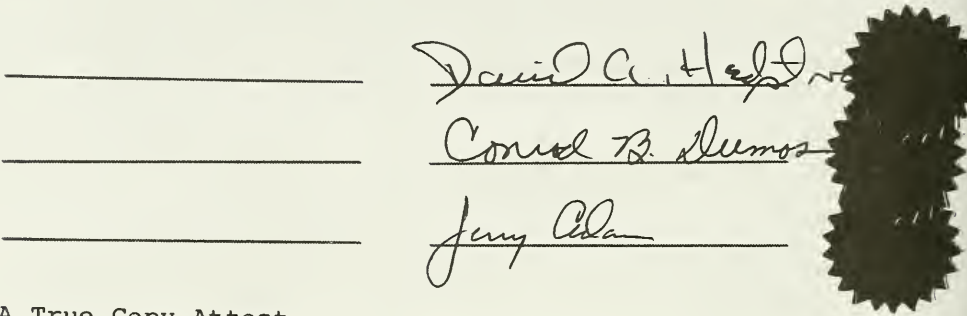 David A.
Conrad B. Dumos
Jerry Adam
A True Copy Attest